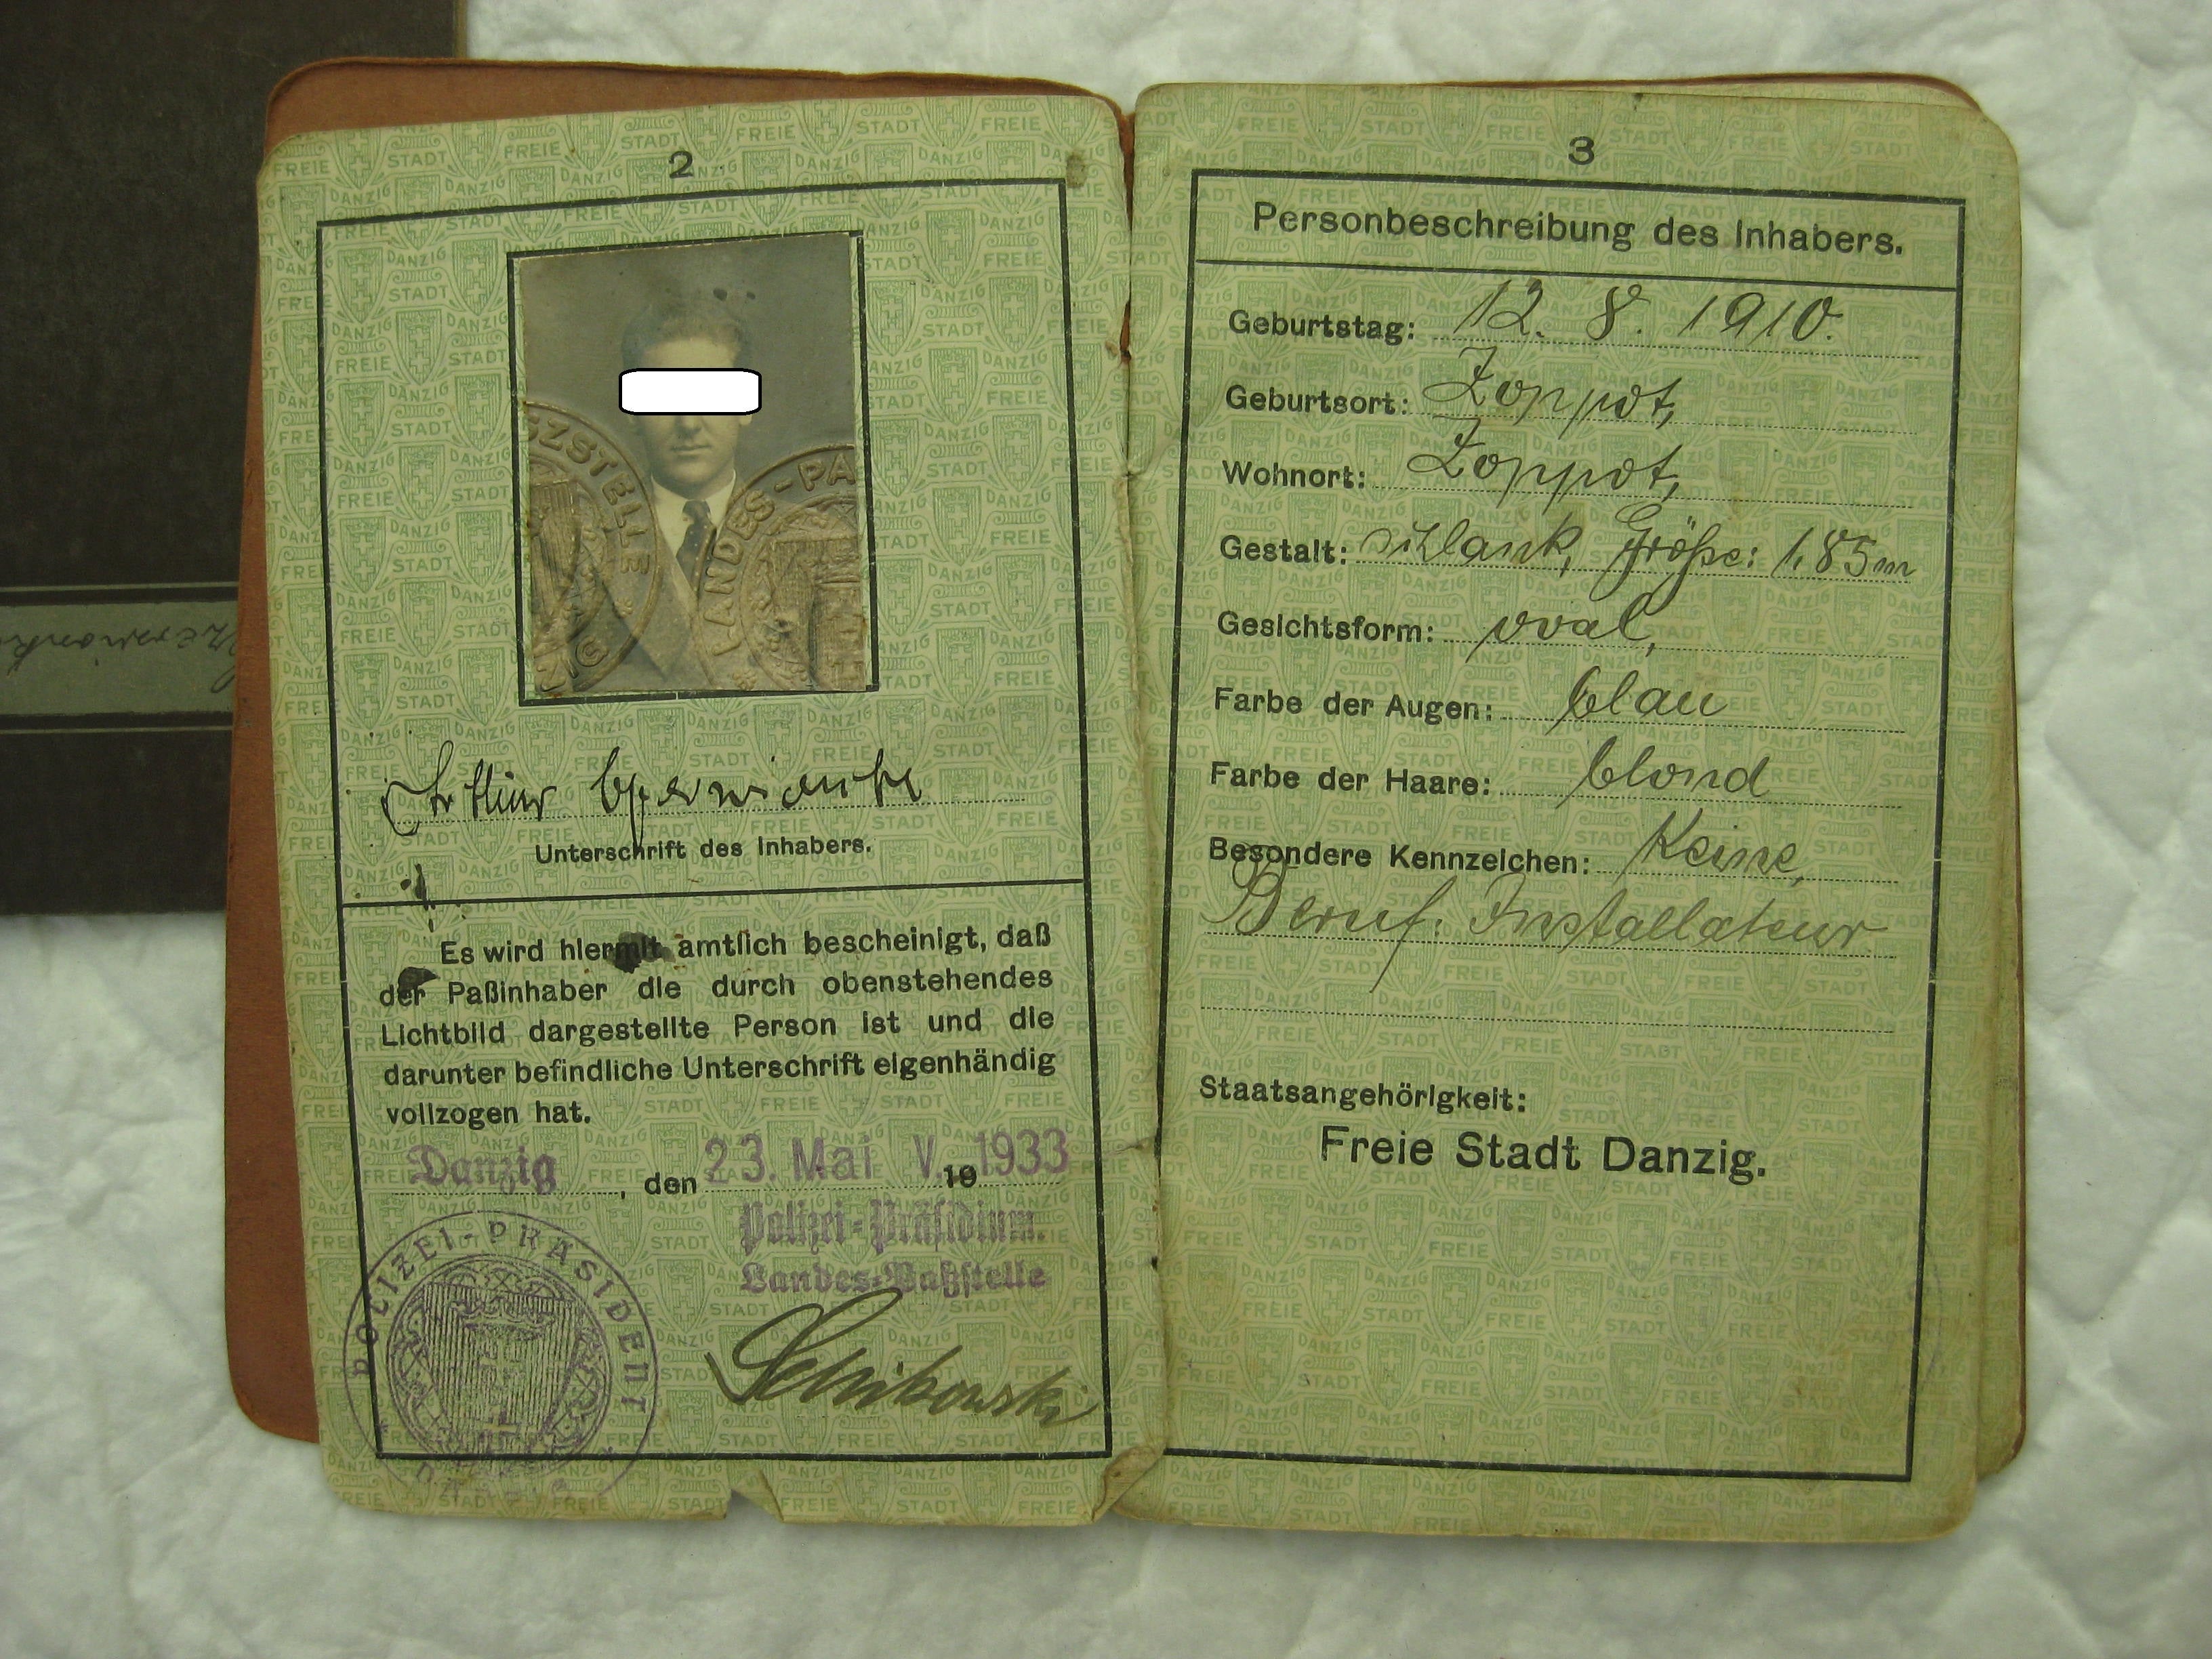 2
Arthur Czerwionke
Unterschrift des Inhabers.
Es wird hiermit amtlich bescheinigt, daß
der Paßinhaber die durch obenstehendes
Lichtbild dargestellte Person ist und die
darunter befindliche Unterschrift eigenhändig
vollzogen hat.
Danzig, den 23. Mai V. 19 1933
Polizei-Präsidium.
Landes-Paßstelle
POLIZEI-PRÄSIDENT
LANDES-PA
SZSTELLE
ZIG
3
Personbeschreibung des Inhabers.
Geburtstag: 12. 8. 1910.
Geburtsort: Zoppot,
Wohnort: Zoppot,
Gestalt: schlank, Größe: 1,85m
Gesichtsform: oval,
Farbe der Augen: blau
Farbe der Haare: blond
Besondere Kennzeichen: Keine,
Beruf: Installateur
Staatsangehörigkeit:
Freie Stadt Danzig.
FREIE STADT DANZIG